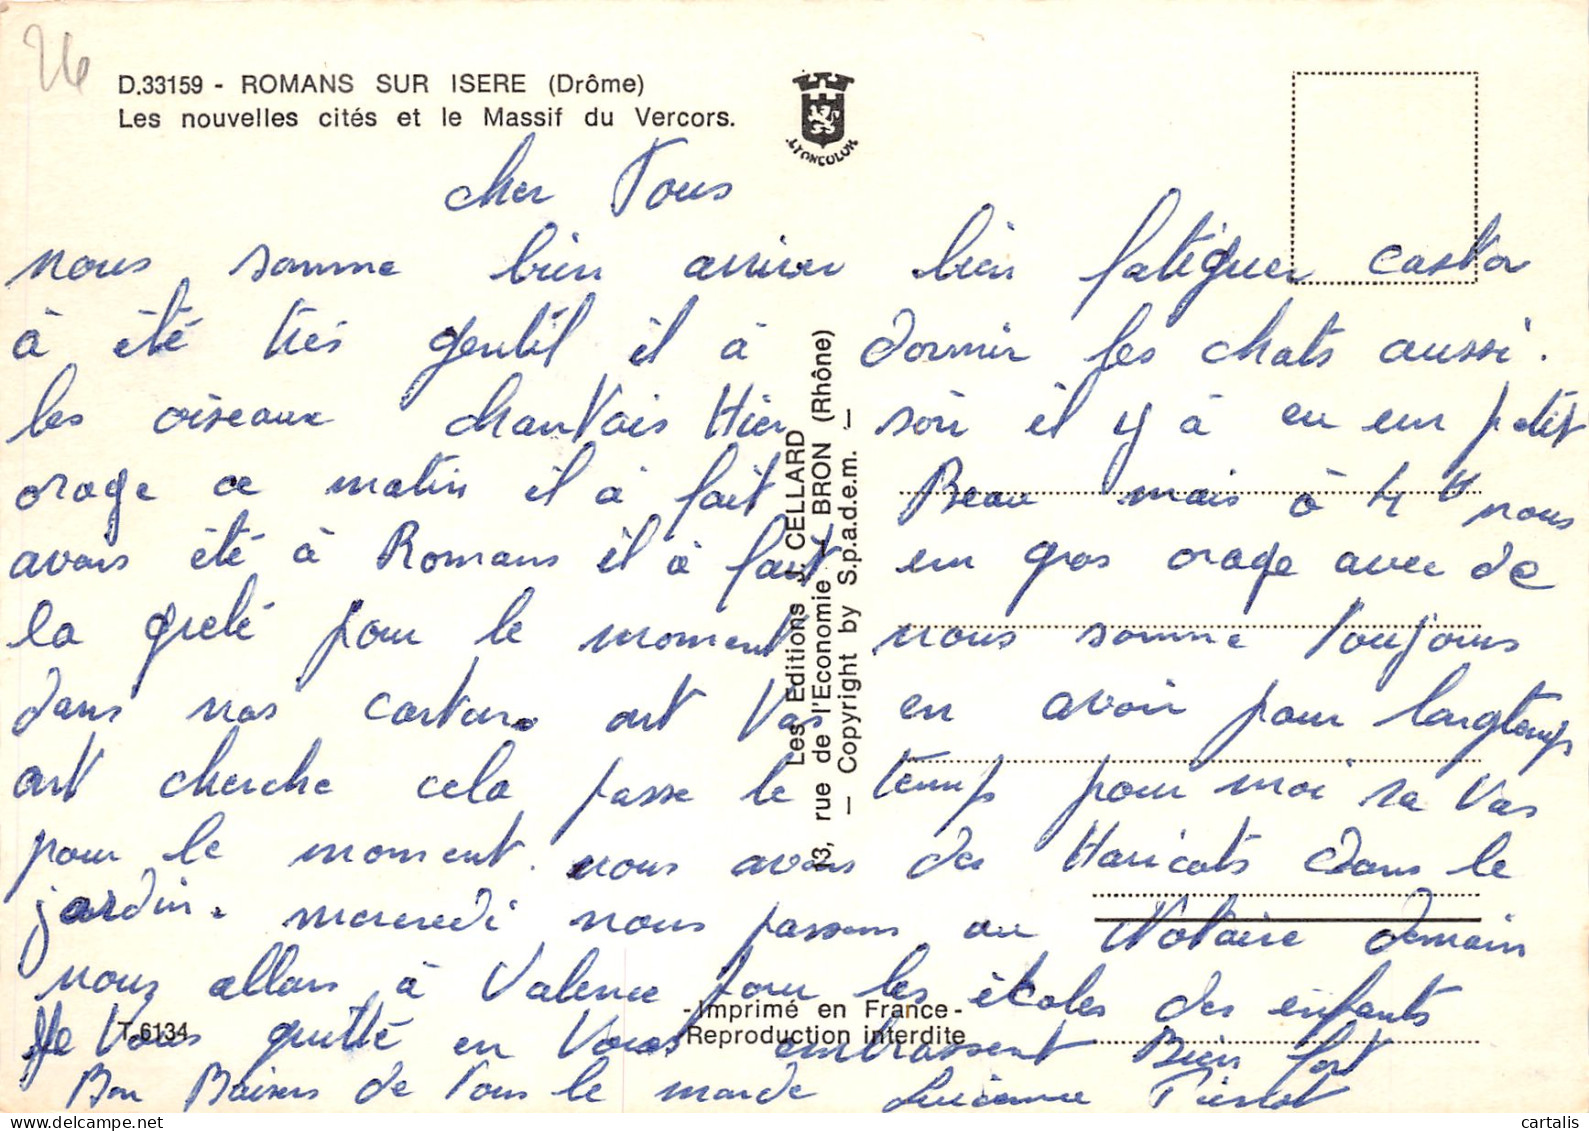 26
D.33159 - ROMANS SUR ISERE (Drôme)
Les nouvelles cités et le Massif du Vercors.
LYONCOLOR
cher Tous
nous somme bien arriver bien fatiguer castor
à été trés gentil il à dormir les chats aussi.
les oiseaux chantais Hier soir il y à eu eun petit
orage ce matin il à fait Beau mais à 4 H nous
avons été à Romans il à fait eun gros orage avec de
la grele pour le moment nous somme toujours
dans nos cartons ont Vas en avoir pour longtemps
ont cherche cela passe le temp pour moi sa Vas
pour le moment. nous avons des Haricots dans le
jardin. mercredi nous passons au Notaire demain
nous allons à Valence pour les ékoles des enfants
Je Vous quitté en Vous embrassent Bien fort
Bon Baisers de Tous le monde Lucienne Pierrot
Les Editions J. CELLARD
13, rue de l'Economie - BRON (Rhône)
— Copyright by S.p.a.d.e.m. —
T 6134
-Imprimé en France-
Reproduction interdite
cartalis